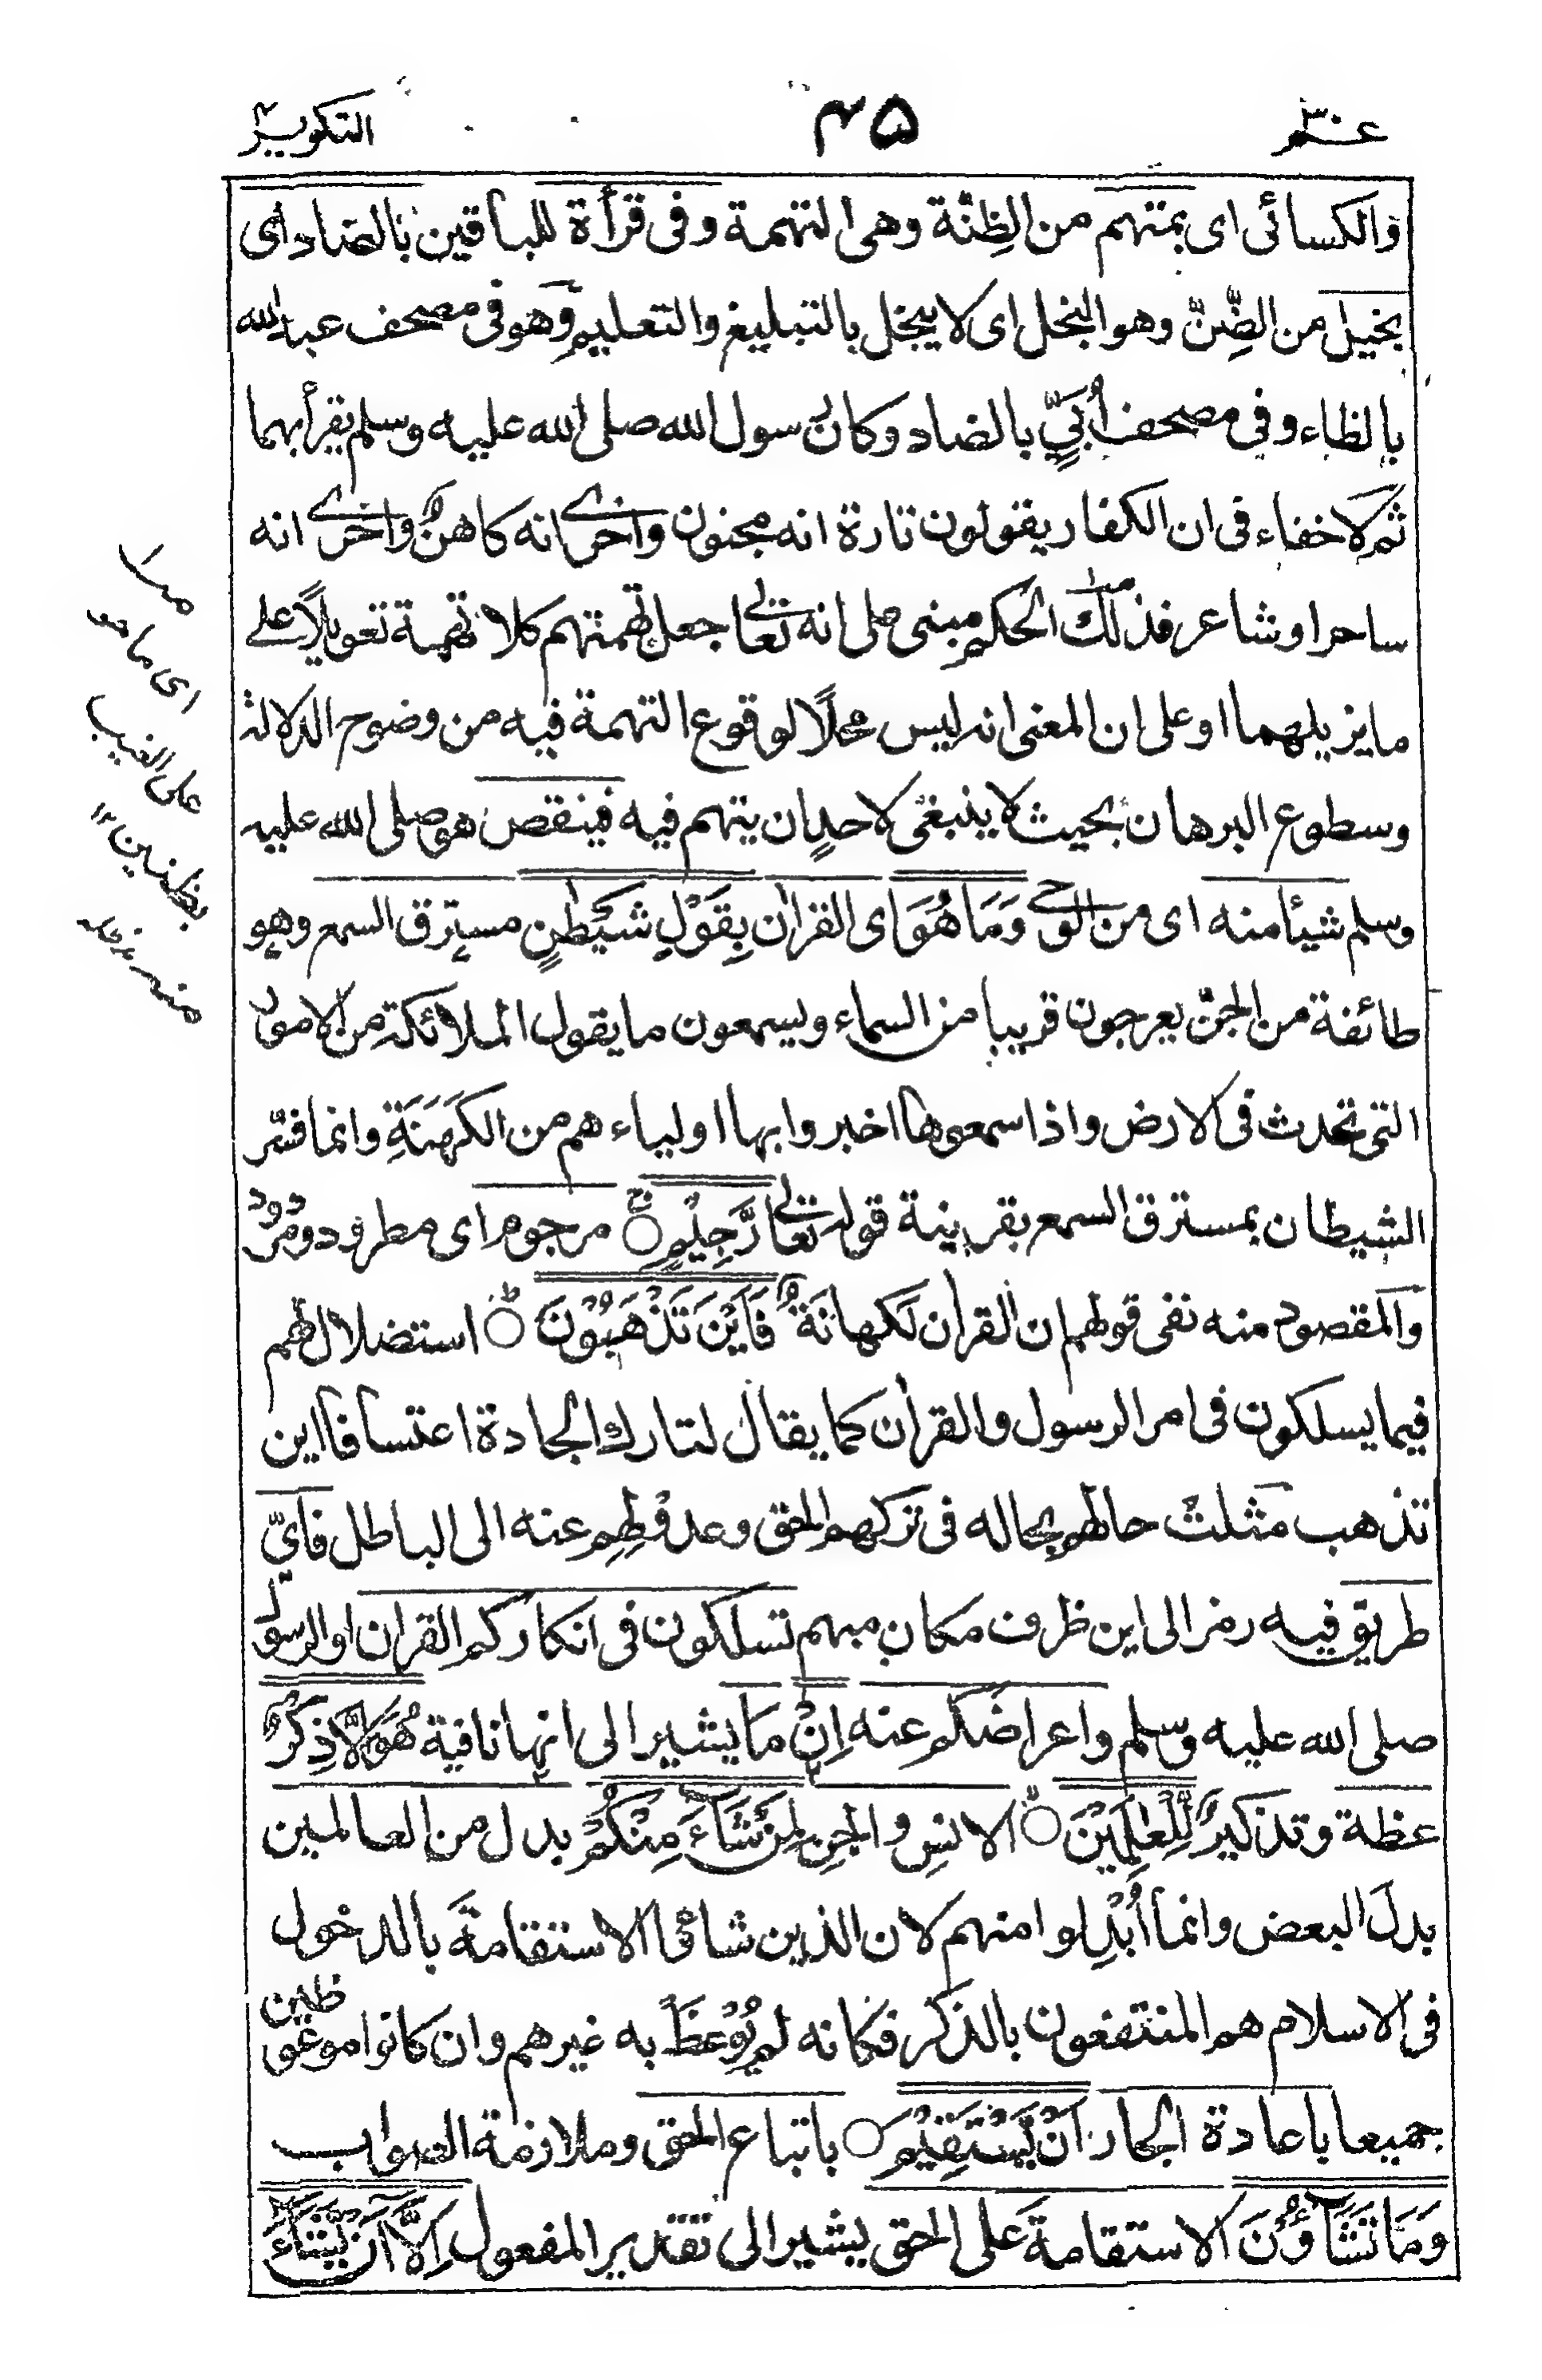 عم ٣٠
٤٥
التكوير
والكسائى اى بمتهم من الظِنّة وهى التهمة وفى قرأة للباقين بالضاد اى
بخيل من الضِنّ وهو البخل اى لا يبخل بالتبليغ والتعليم وهو فى مصحف عبد الله
بالظاء وفى مصحف اُبَيٍّ بالضاد وكان رسول الله صلى الله عليه وسلم يقرأ بهما
ثم لا خفاء فى ان الكفار يقولون تارة انه مجنون واخرى انه كاهنٌ واخرى انه
ساحر اوشاعر فذلك الحكم مبنى على انه تعالى جعل تهمتهم كلا تهمة تعويلًا على
ما يزيلهما او على ان المعنى انه ليس محلًا لوقوع التهمة فيه من وضوح الدلالة
وسطوع البرهان بحيث لا ينبغى لاحدٍ ان يتهم فيه فينقص هو صلى الله عليه
وسلم شيئا منه اى من الوحى وَمَا هُوَ اى القرآن بِقَوْلِ شَيْطٰنٍ مسترق السمع وهو
طائفة من الجنّ يعرجون قريبا من السماء ويسمعون ما يقول الملائكة من الامور
التى تحدث فى الارض واذا سمعوها اخبروا بها اولياء هم من الكَهَنَةِ وانما فسّر
الشيطان بمسترق السمع بقرينة قوله تعالى رَّجِيْمٍ ○ مرجوم اى مطرود ومردود
والمقصود منه نفى قولهم ان القرآن لكهانةٌ فَاَيْنَ تَذْهَبُوْنَ ○ استضلال لهم
فيما يسلكون فى امر الرسول والقرآن كما يقال لتارك الجادة اعتسافا اين
تذهب مثلث حالهم بحاله فى تركهم الحق وعدولِهِم عنه الى الباطل فاىّ
طريق فيه رمز الى اين ظرف مكان مبهم تسلكون فى انكاركم القرآن او الرسول
صلى الله عليه وسلم واعراضكم عنه اِنْ ما يشير الى انها نافية هُوَ اِلَّا ذِكْرٌ
عظة وتذكيرٌ لِّلْعٰلَمِيْنَ ○ الانس والجن لِمَنْ شَآءَ مِنْكُمْ بدل من العالمين
بدل البعض وانما اُبْدِلوا منهم لان الذين شاؤا الاستقامة بالدخول
فى الاسلام هم المنتفعون بالذكر فكانه لم يُوْعظ به غيرهم وان كانوا موعوظين
جميعا باعادة الجار اَنْ يَّسْتَقِيْمَ ○ باتباع الحق وملازمة الصواب
وَمَا تَشَآؤُنَ الاستقامة على الحق يشير الى تقدير المفعول اِلَّآ اَنْ يَّشَآءَ
اى ما هو
على الغيب
بظنين ١٢
منه